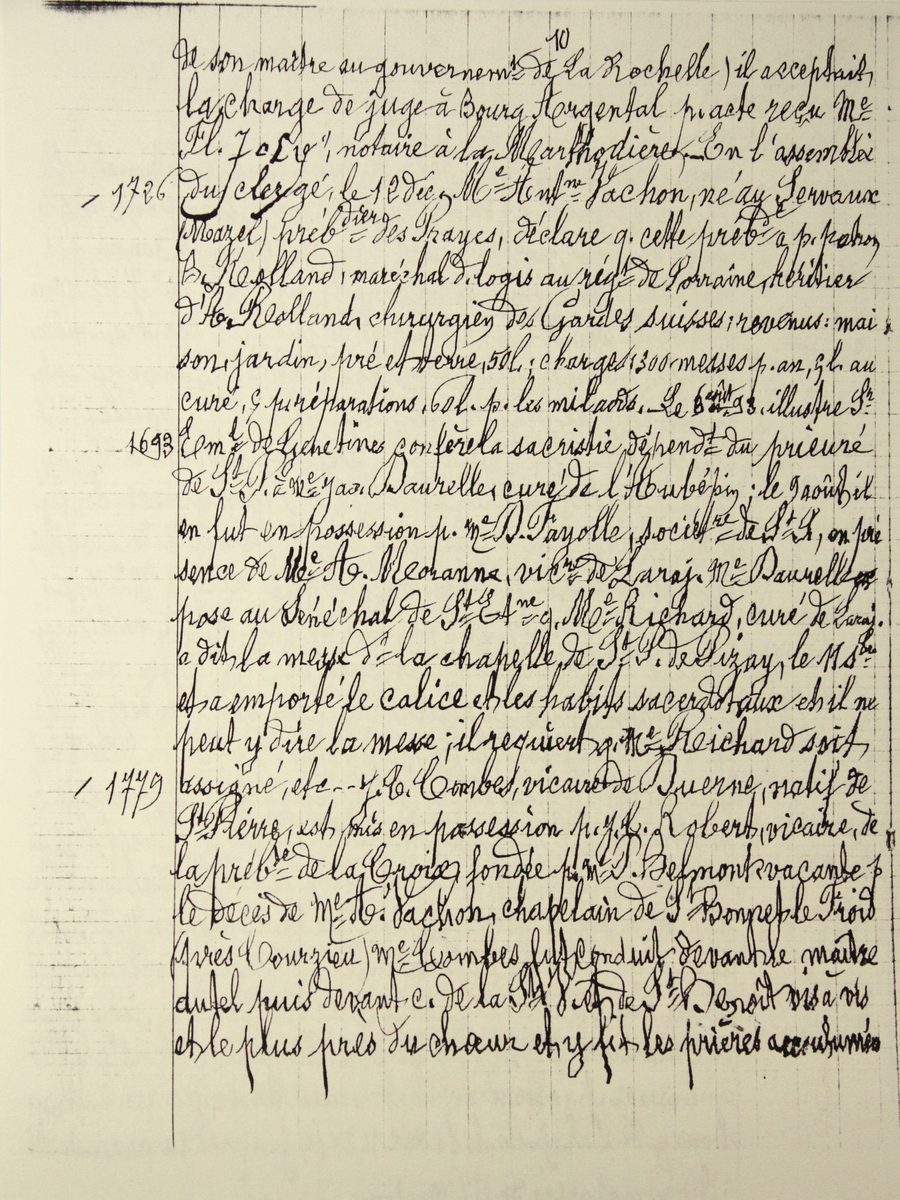 10
de son maître au gouvernemt de La Rochelle) il acceptait
la charge de juge à Bourg Argental p. acte reçu Me
Fl. notaire à la Marthodière. En l'assemblée
1726 du clergé, le 12 déc. Me Antne Vachon, né au Servaux
(Mazet) prébdier des Prayes, déclare q. cette prébde a p. patron
B. Rolland, maréchal d. logis au régt de Lorraine, héritier
d'A. Rolland, chirurgien des Gardes suisses; revenus: mai
son, jardin, pré et terre, 50l.; charges, 300 messes p. an, 5l. au
curé, 5 p. réparations, 60l. p. les mil aods. Le août 93. illustre Sr
1693 Emel de Genetines confère la sacristie dépendt du prieuré
de St P. à Me Jax. Baurelle, curé de l'Aubépin; le 9 août il
en fut en possession p. Me B. Fayolle, sociétre de St S, en pré
sence de Me A. Meranne, vicre de Laraj. Me Baurelle ex
pose au Sénéchal de St Etne q. Me Richard, curé de Laraj.
a dit la messe ds la chapelle de St P. de Lizay, le 11 sbre
et a emporté le calice et les habits sacerdotaux et il ne
peut y dire la messe; il requiert q. Me Reichard soit
1779 assigné, etc... J. C. Combes, vicaire de Duerne, natif de
St Pierre, est mis en possession p. J. L. Robert, vicaire, de
la prébde de la Croix, fondée p. Me P. Belmont vacante p
le décès de Me A. Vachon, chapelain de St Bonnet le Froid
(très Courzieu) Me Combes fut conduit devant le maître
autel puis devant c. de la Ste V. et de St Benoît vis à vis
et le plus près du chœur et y fit les prières accoutumées